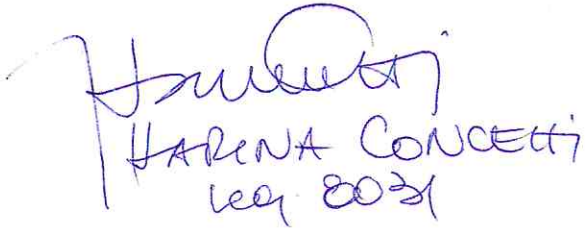 MARINA CONCETTI
Leg. 8031